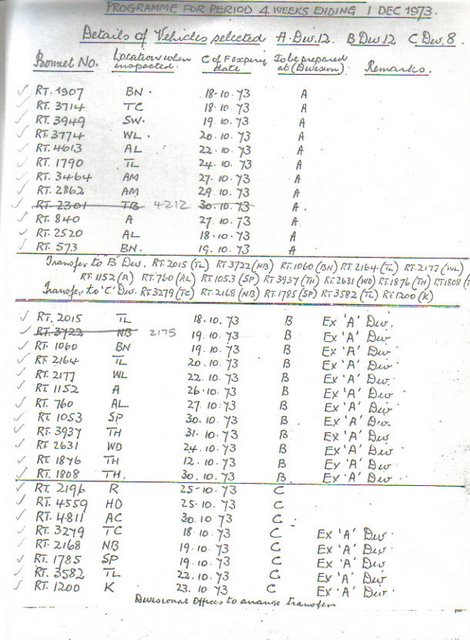 PROGRAMME FOR PERIOD 4 WEEKS ENDING 1 DEC 1973.
Details of Vehicles selected A Div. 12. B Div 12 C Div. 8.
Bonnet No. Location when inspected. C of F expiry date To be prepared at (Division) Remarks.
✓ RT. 1907 BN. 18-10.73 A
✓ RT. 3714 TC 18.10.73 A
✓ RT. 3949 SW. 19.10.73 A
✓ RT. 3774 WL. 20.10.73 A
✓ RT. 4613 AL 22.10.73 A
✓ RT. 1790 TL 24.10.73 A
✓ RT. 3464 AM 27.10.73 A
✓ RT. 2862 AM 29.10.73 A
✓ RT. 2301 TB 4212 30.10.73 A.
✓ RT. 840 A 27.10.73 A
✓ RT. 2520 AL 18.10.73 A
✓ RT. 573 BN. 19.10.73 A
Transfer to 'B' Div. RT. 2015 (TL) RT 3722 (NB) RT. 1060 (BN) RT. 2164 (TL) RT. 2177 (WL)
RT. 1152 (A) RT. 760 (AL) RT 1053 (SP) RT. 3937 (TH) RT. 2631 (WD) RT. 1876 (TH) RT 1808 (
Transfer to 'C' Div. RT 3279 (TC) RT. 2168 (NB) RT. 1785 (SP) RT. 3582 (TL) RT. 1200 (K)
✓ RT. 2015 TL 18.10.73 B Ex 'A' Div.
✓ RT. 3722 NB 2175 19.10.73 B Ex 'A' Div
✓ RT 1060 BN 19.10.73 B Ex 'A' Div
✓ RT. 2164 TL 20.10.73 B Ex 'A' Div
✓ RT. 2177 WL 22.10.73 B Ex 'A' Div
✓ RT 1152 A 26.10.73 B Ex 'A' Div
✓ RT. 760 AL 27.10.73 B Ex 'A' Div
✓ RT 1053 SP 30.10.73 B Ex 'A' Div.
✓ RT. 3937 TH 31.10.73 B Ex 'A' Div
✓ RT 2631 WD 24.10.73 B Ex 'A' Div
✓ RT 1876 TH 12.10.73 B Ex 'A' Div
✓ RT. 1808 TH. 30.10.73 B Ex 'A' Div
✓ RT. 2196 R 25-10.73 C
✓ RT. 4559 HD 25.10.73 C
✓ RT. 4811 AC 30.10.73 C
✓ RT. 3279 TC 18.10.73 C Ex 'A' Div
✓ RT. 2168 NB 19.10.73 C Ex 'A' Div
✓ RT. 1785 SP 19.10.73 C Ex 'A' Div
✓ RT. 3582 TL 22.10.73 C Ex 'A' Div
✓ RT. 1200 K 23.10.73 C Ex 'A' Div
Divisional Offices to arrange transfers